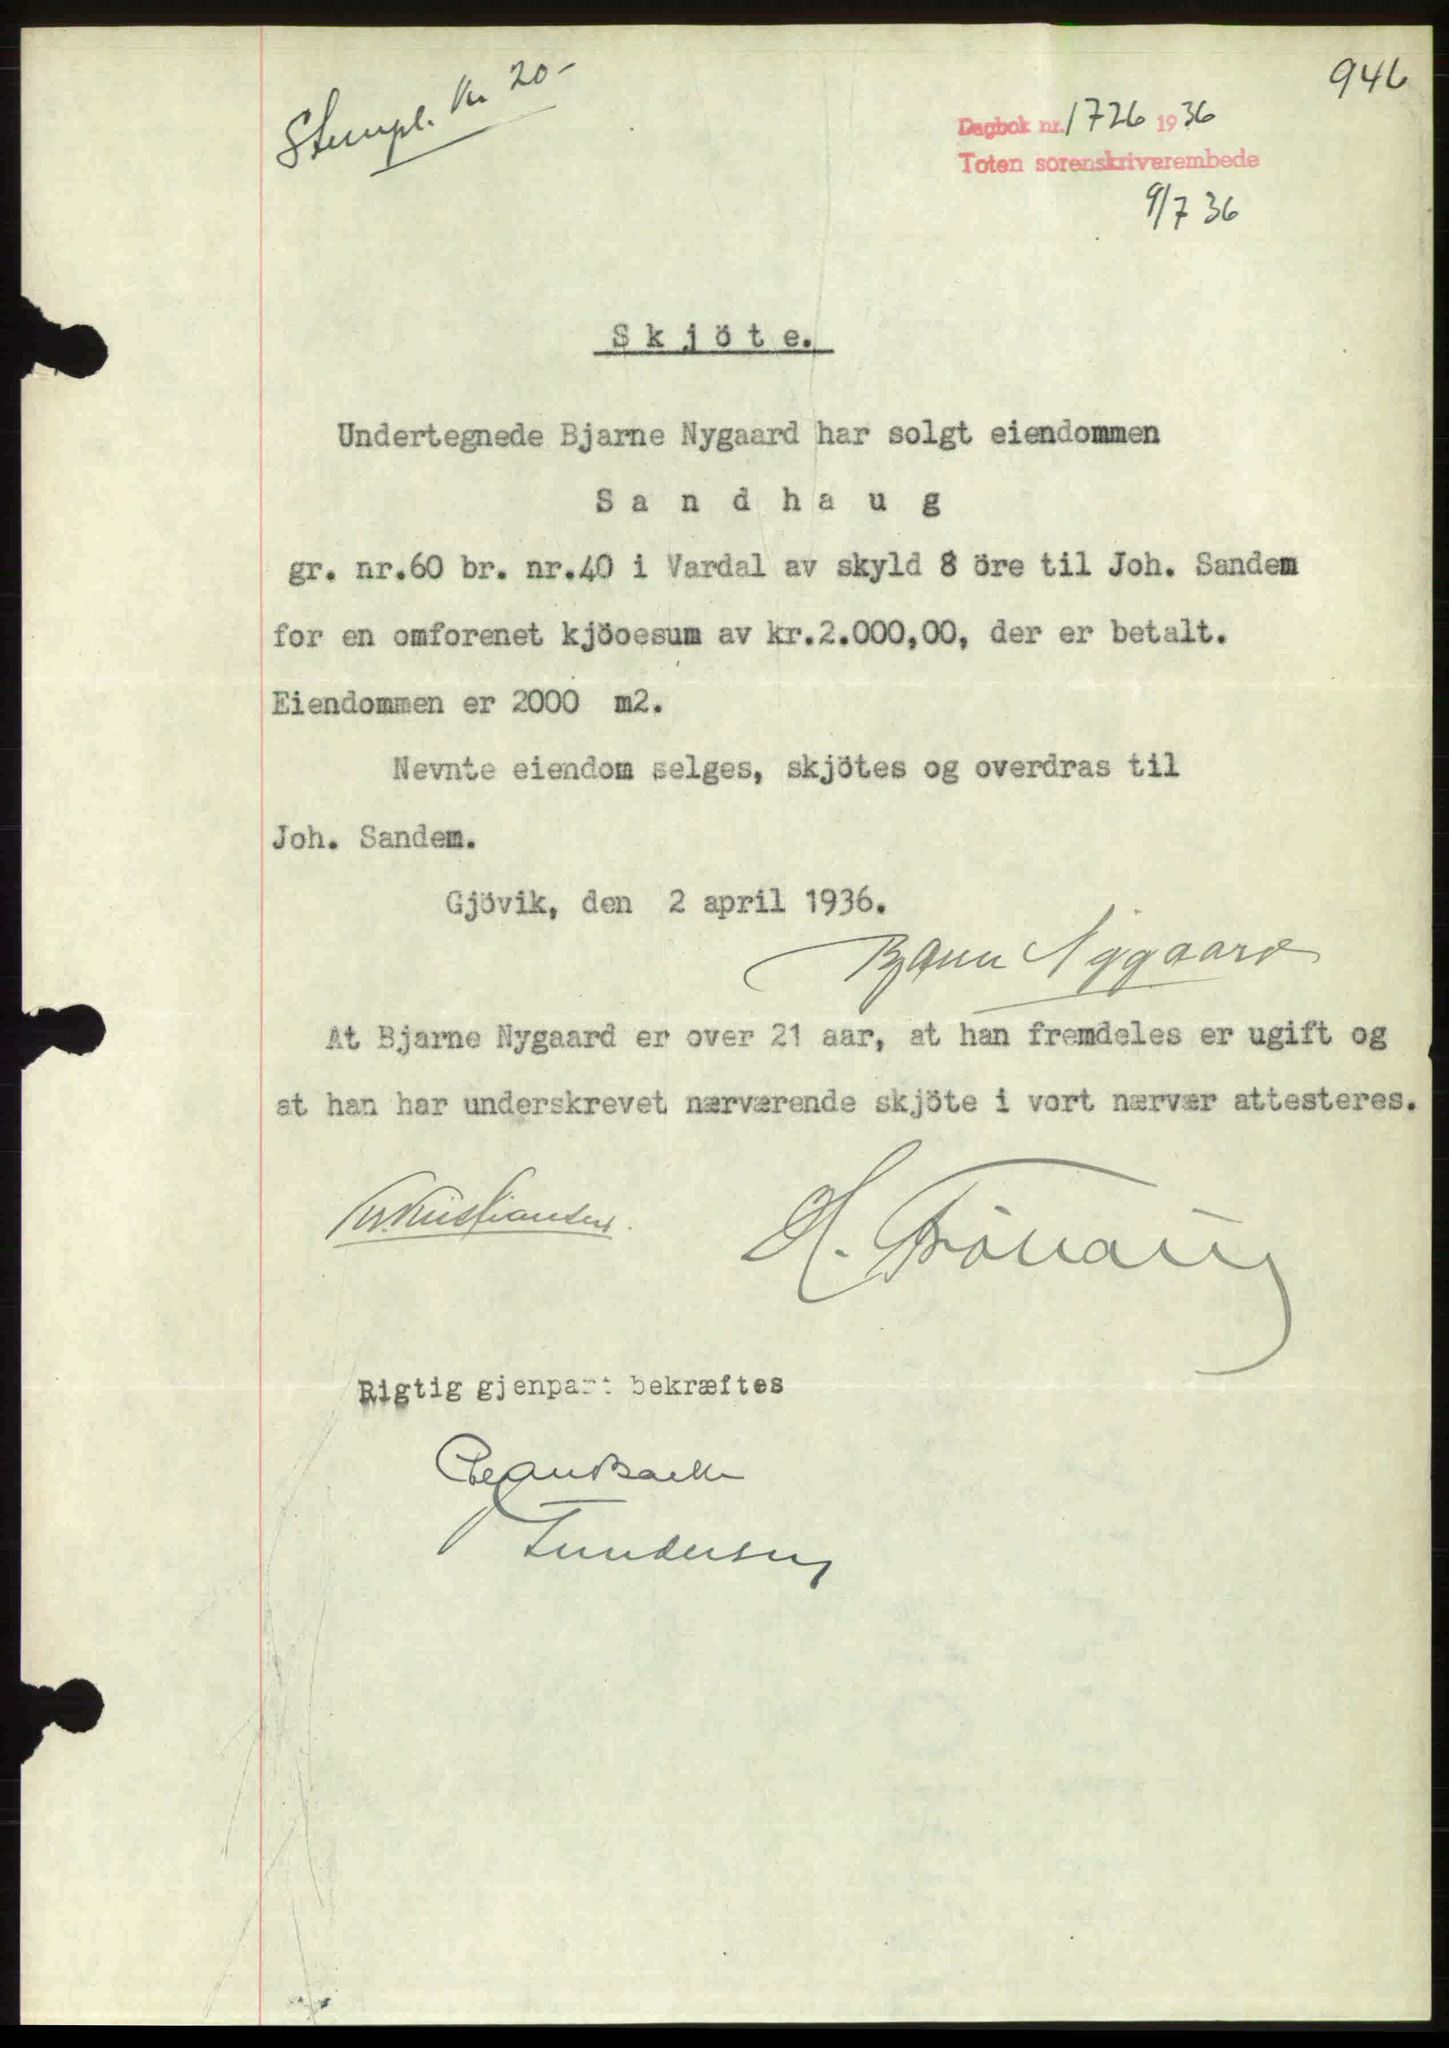 946
Stempl. kr 20-
Dagbok nr. 1726 1936
Toten sorenskriverembede
9/7 36
Skjöte.
Undertegnede Bjarne Nygaard har solgt eiendommen
Sandhaug
gr. nr.60 br. nr.40 i Vardal av skyld 8 öre til Joh. Sandem
for en omforenet kjöoesum av kr.2.000,00, der er betalt.
Eiendommen er 2000 m2.
Nevnte eiendom selges, skjötes og overdras til
Joh. Sandem.
Gjövik, den 2 april 1936.
Bjarne Nygaard
At Bjarne Nygaard er over 21 aar, at han fremdeles er ugift og
at han har underskrevet nærværende skjöte i vort nærvær attesteres.
Kristiansen.
H.
Rigtig gjenpart bekræftes